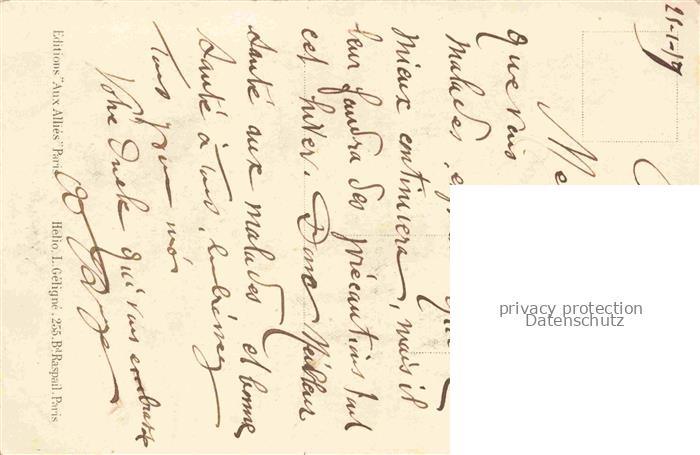 25-1-17
que vais
malades, e
mieux continuera, mais il
leur faudra des précautions tout
cet hiver. Donc meilleure
santé aux malades et bonne
santé à tous, embrassez
tous pour moi
Votre Oncle qui vous embrasse
Editions "Aux Alliés" Paris
Hélio. L. Géligné, 255, Bd Raspail, Paris
privacy protection
Datenschutz